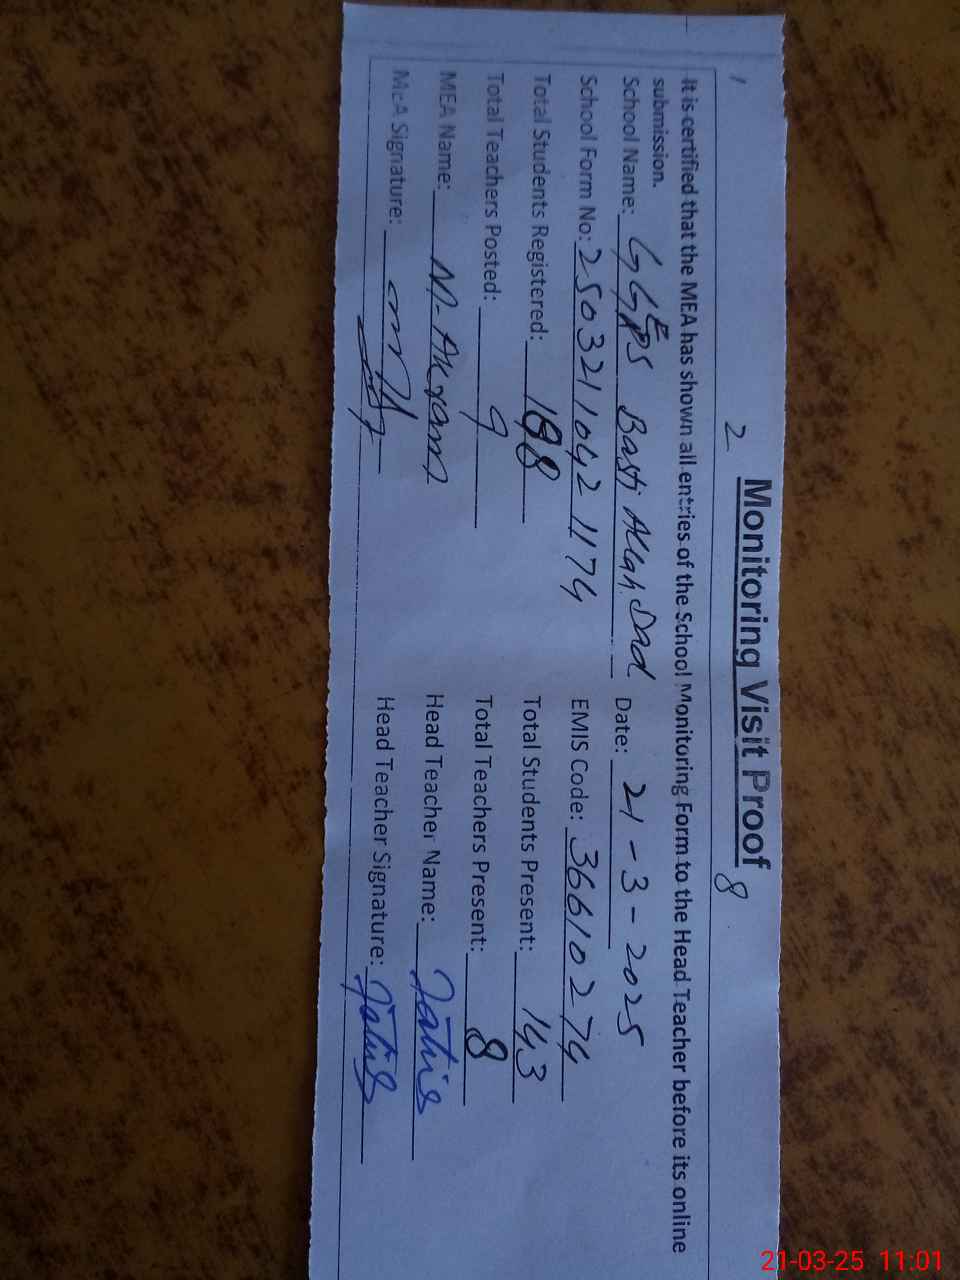 1 2 8
Monitoring Visit Proof
It is certified that the MEA has shown all entries of the School Monitoring Form to the Head Teacher before its online
submission.
School Name: GGEPS Basti Allah Dad Date: 21-3-2025
School Form No: 25032110421174 EMIS Code: 36610274
Total Students Registered: 188 Total Students Present: 143
Total Teachers Posted: 9 Total Teachers Present: 8
MEA Name: M. Akram Head Teacher Name:
MEA Signature: Head Teacher Signature:
21-03-25 11:01